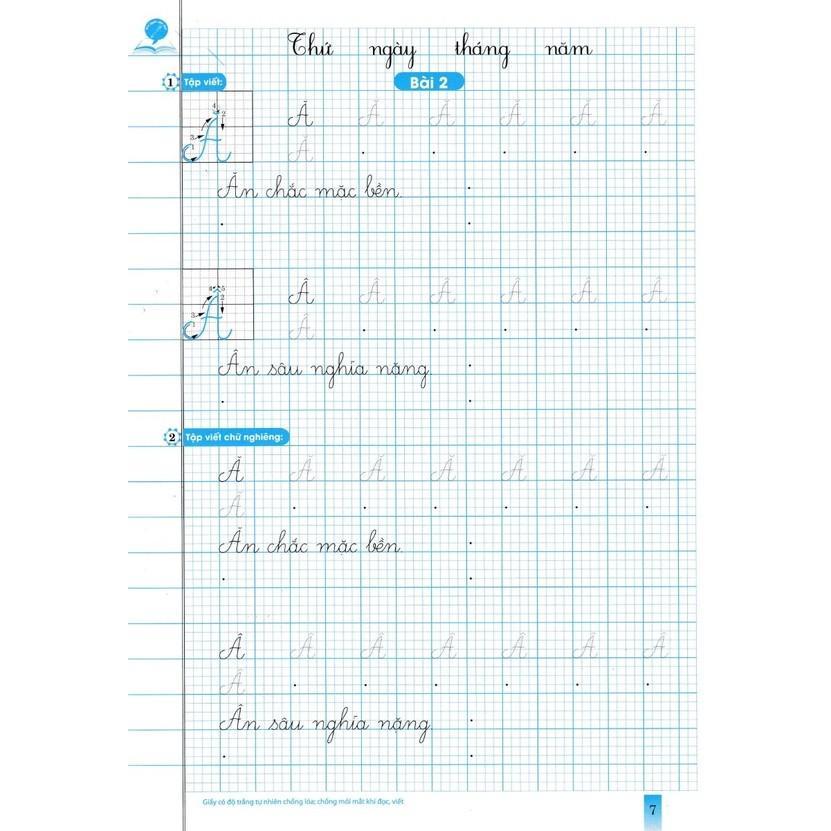 Thứ ngày tháng năm
1 Tập viết: Bài 2
4 2 Ă Ă Ă Ă Ă Ă Ă
3 1 Ă
Ăn chắc mặc bền.
4 5 2 Â Â Â Â Â Â Â
3 1 Â
Ân sâu nghĩa nặng
2 Tập viết chữ nghiêng:
Ă Ă Ă Ă Ă Ă Ă
Ă
Ăn chắc mặc bền.
Â Â Â Â Â Â Â
Â
Ân sâu nghĩa nặng
Giấy có độ trắng tự nhiên chống lóa; chống mỏi mắt khi đọc, viết
7